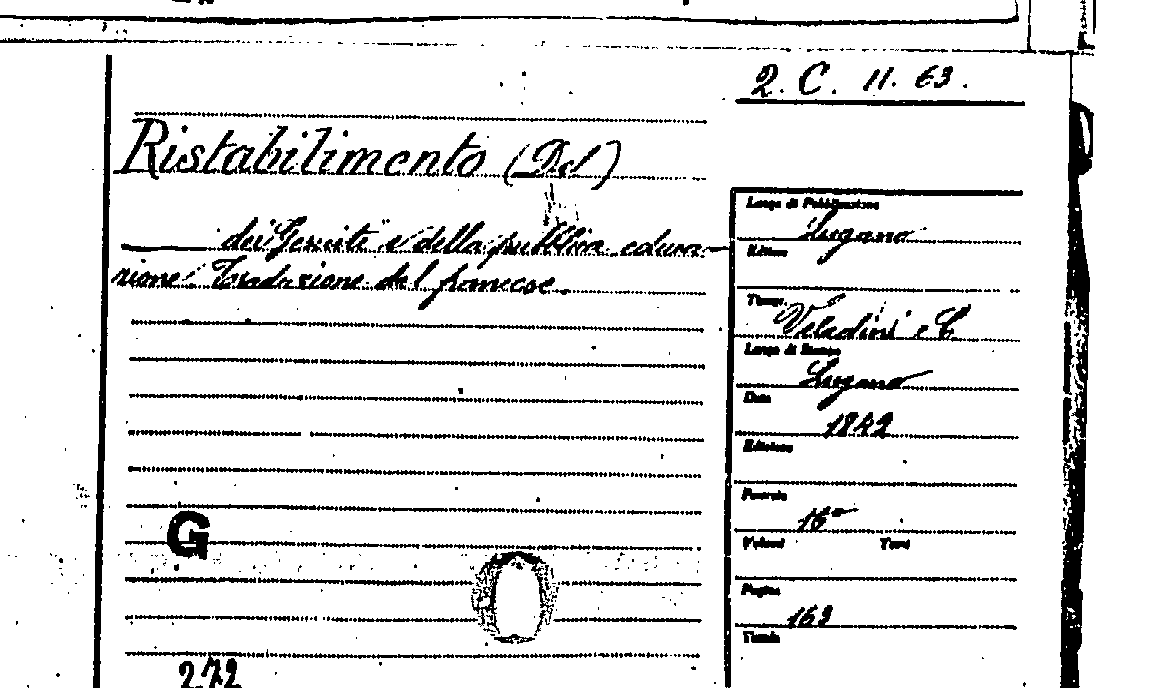 2. C. 11. 63.
Ristabilimento (Del)
dei Gesuiti e della pubblica educa-
zione. Traduzione del francese.
Luogo di Pubblicazione
Lugano
Editore
Tipogr.
Veladini e C.
Luogo di Stampa
Lugano
Data
1842
Edizione
Formato
16°
Volumi Tomi
Pagine
163
Tavole
G
272